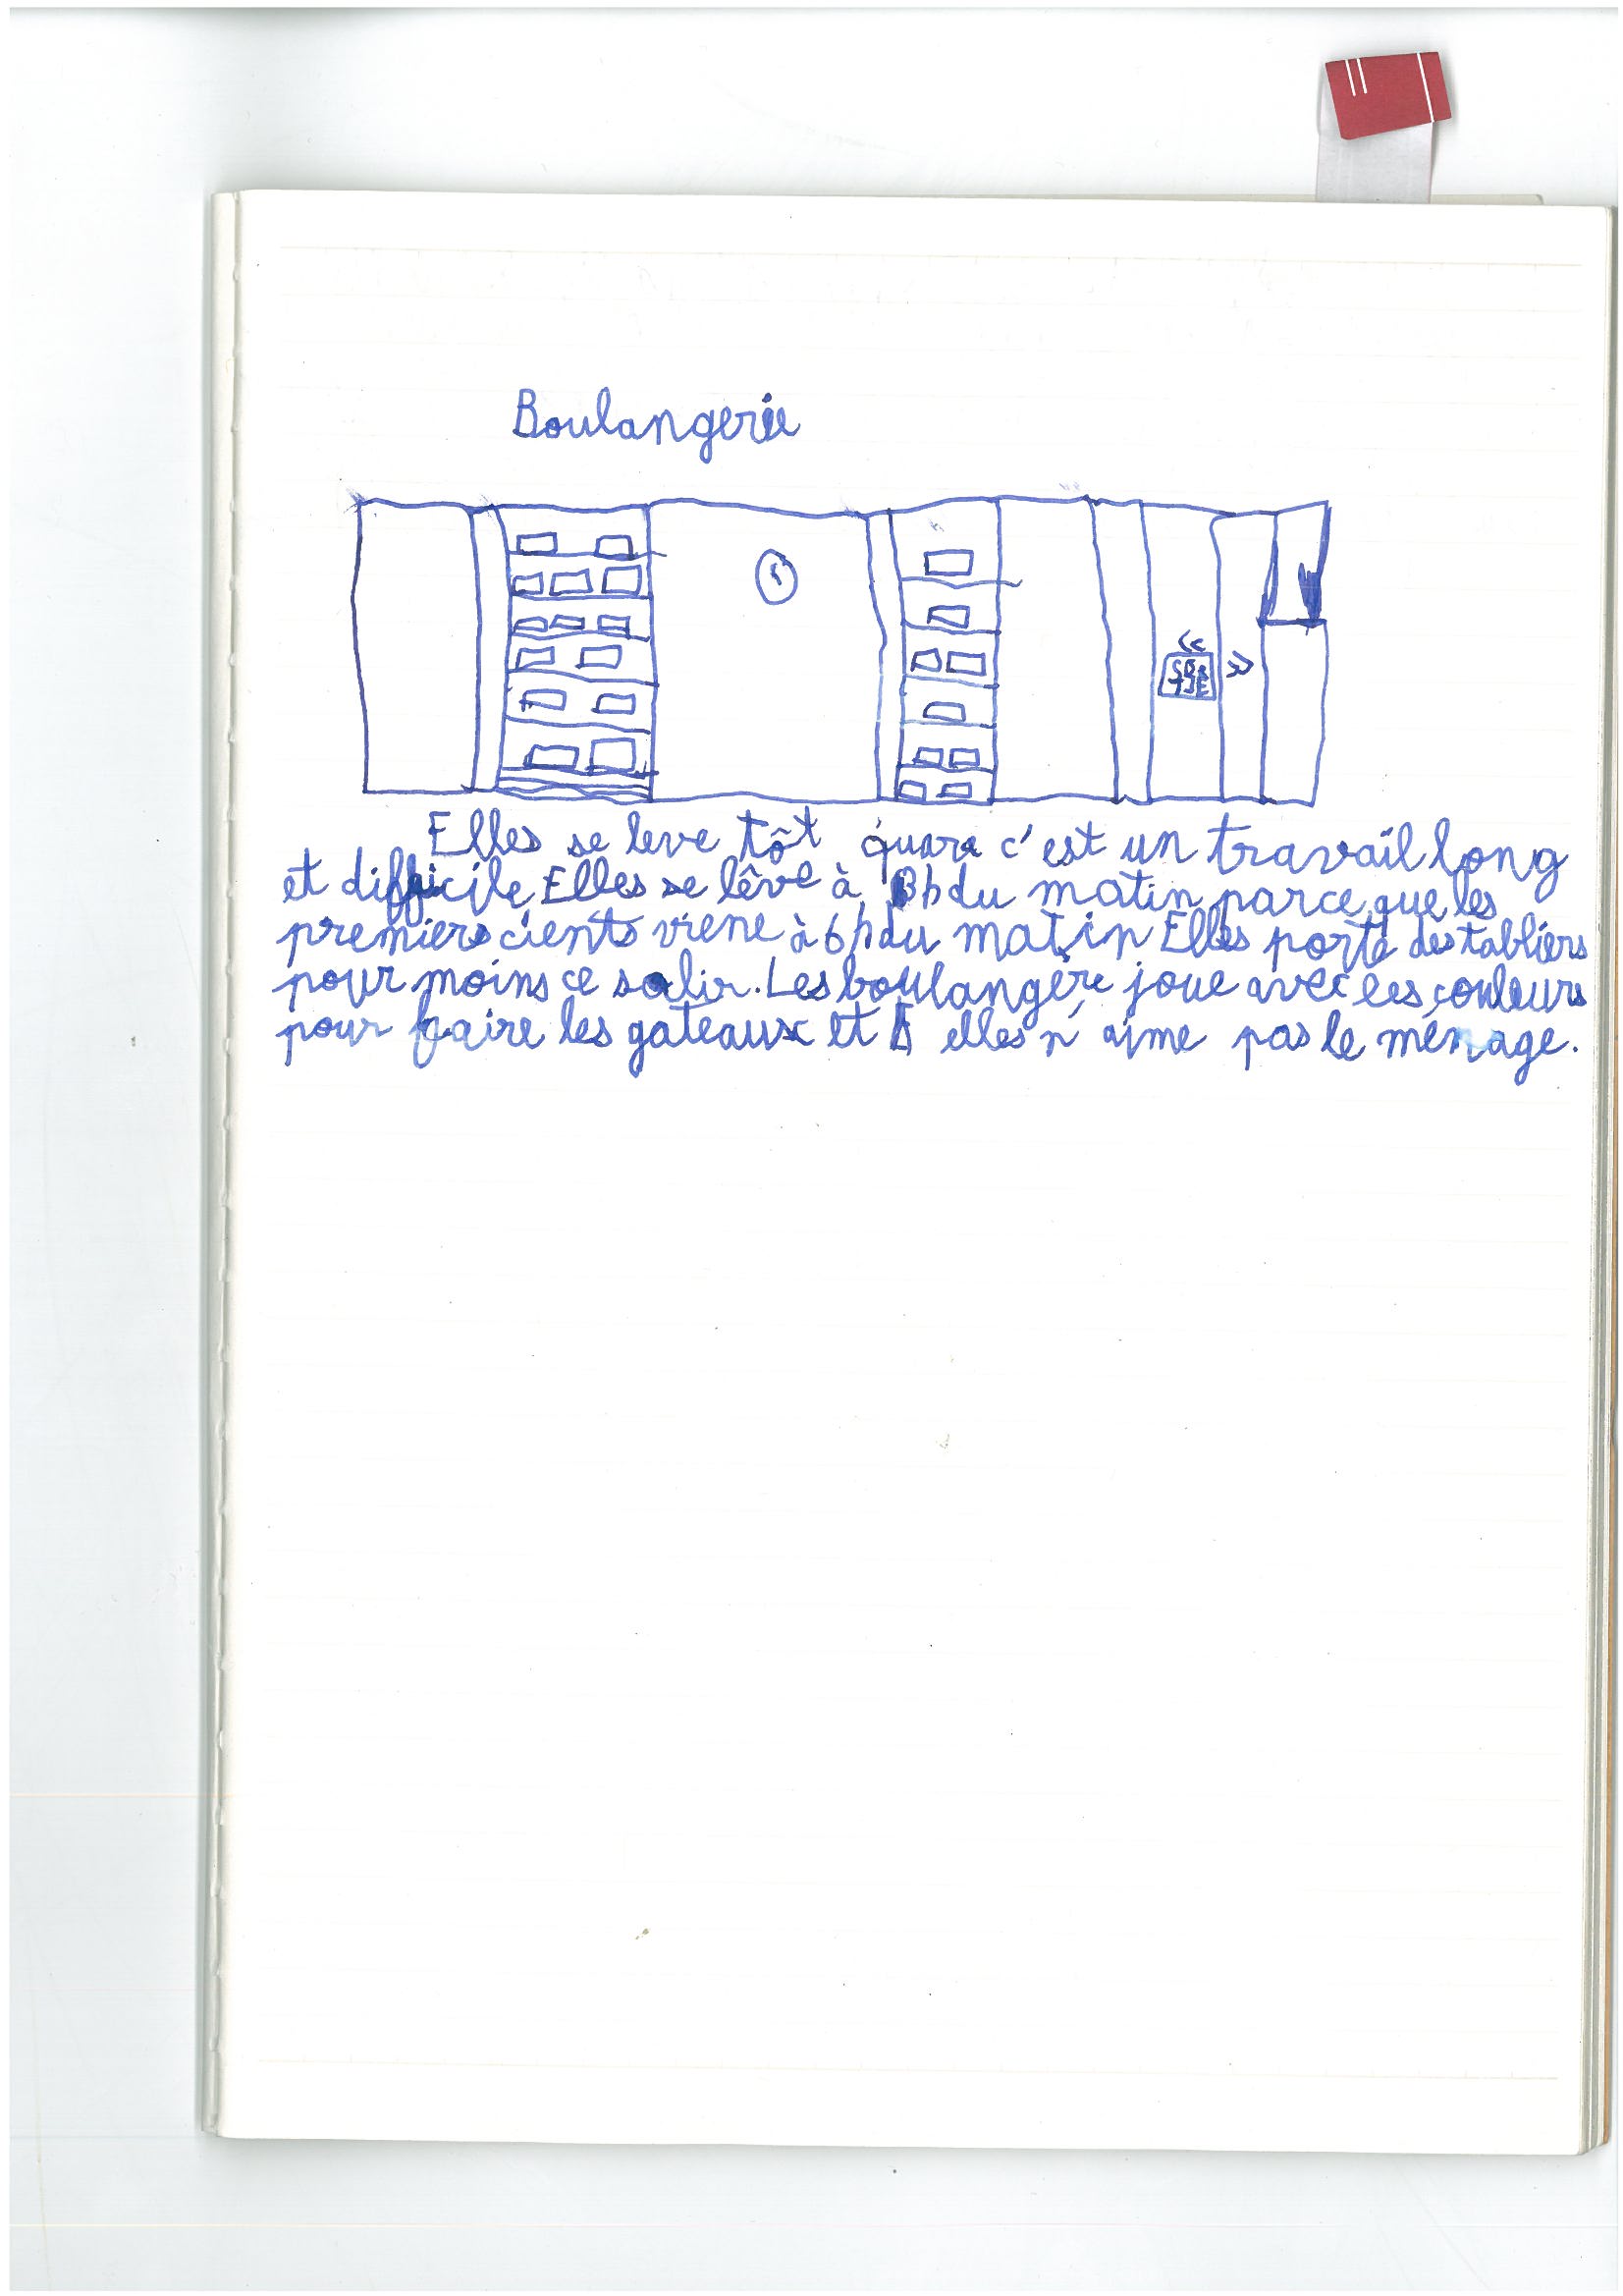 Boulangerie
Elles se leve tôt quara c'est un travail long
et difficile Elles se lêve à 3h du matin parce que les
premiers cients viene à 6h du matin Elles porte des tabliers
pour moins ce salir. Les boulangère joue avec les couleurs
pour faire les gateaux et elles n'ajme pas le ménage.